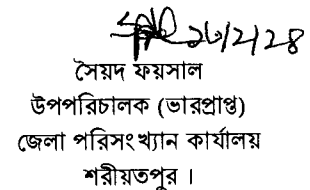 ২৬/২/২৪
সৈয়দ ফয়সাল
উপপরিচালক (ভারপ্রাপ্ত)
জেলা পরিসংখ্যান কার্যালয়
শরীয়তপুর ।